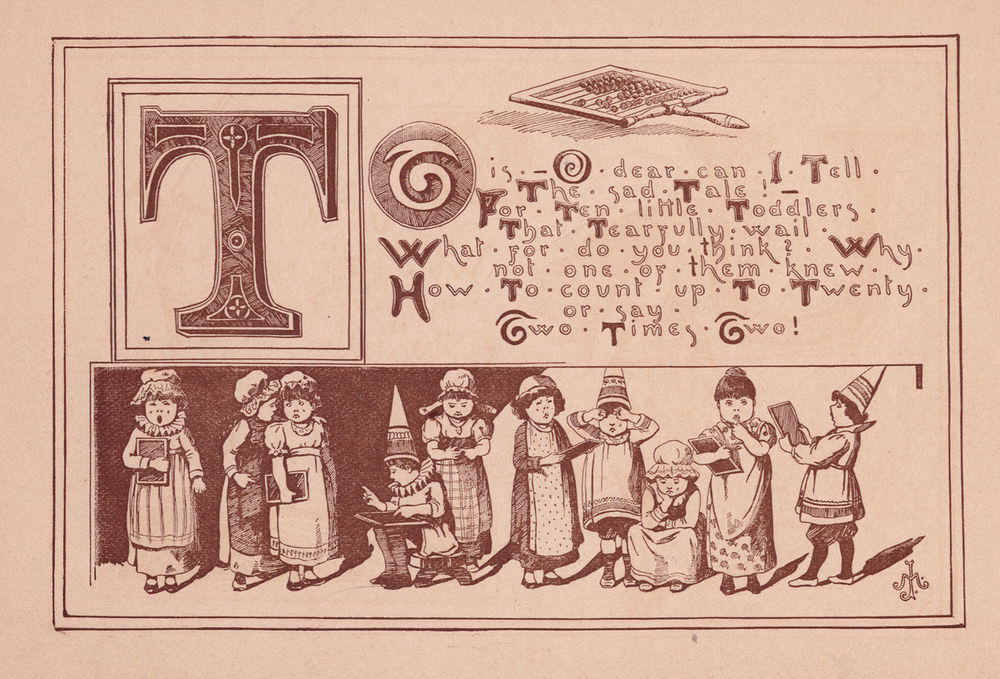 T
T is – O · dear · can · I · Tell ·
The · sad · Tale ! –
For · Ten · little · Toddlers ·
That · Tearfully · wail ·
What · for · do · you · think ? · Why ·
not · one · of · them · knew ·
How · To · count · up · To · Twenty ·
or · say ·
Two · Times · Two !